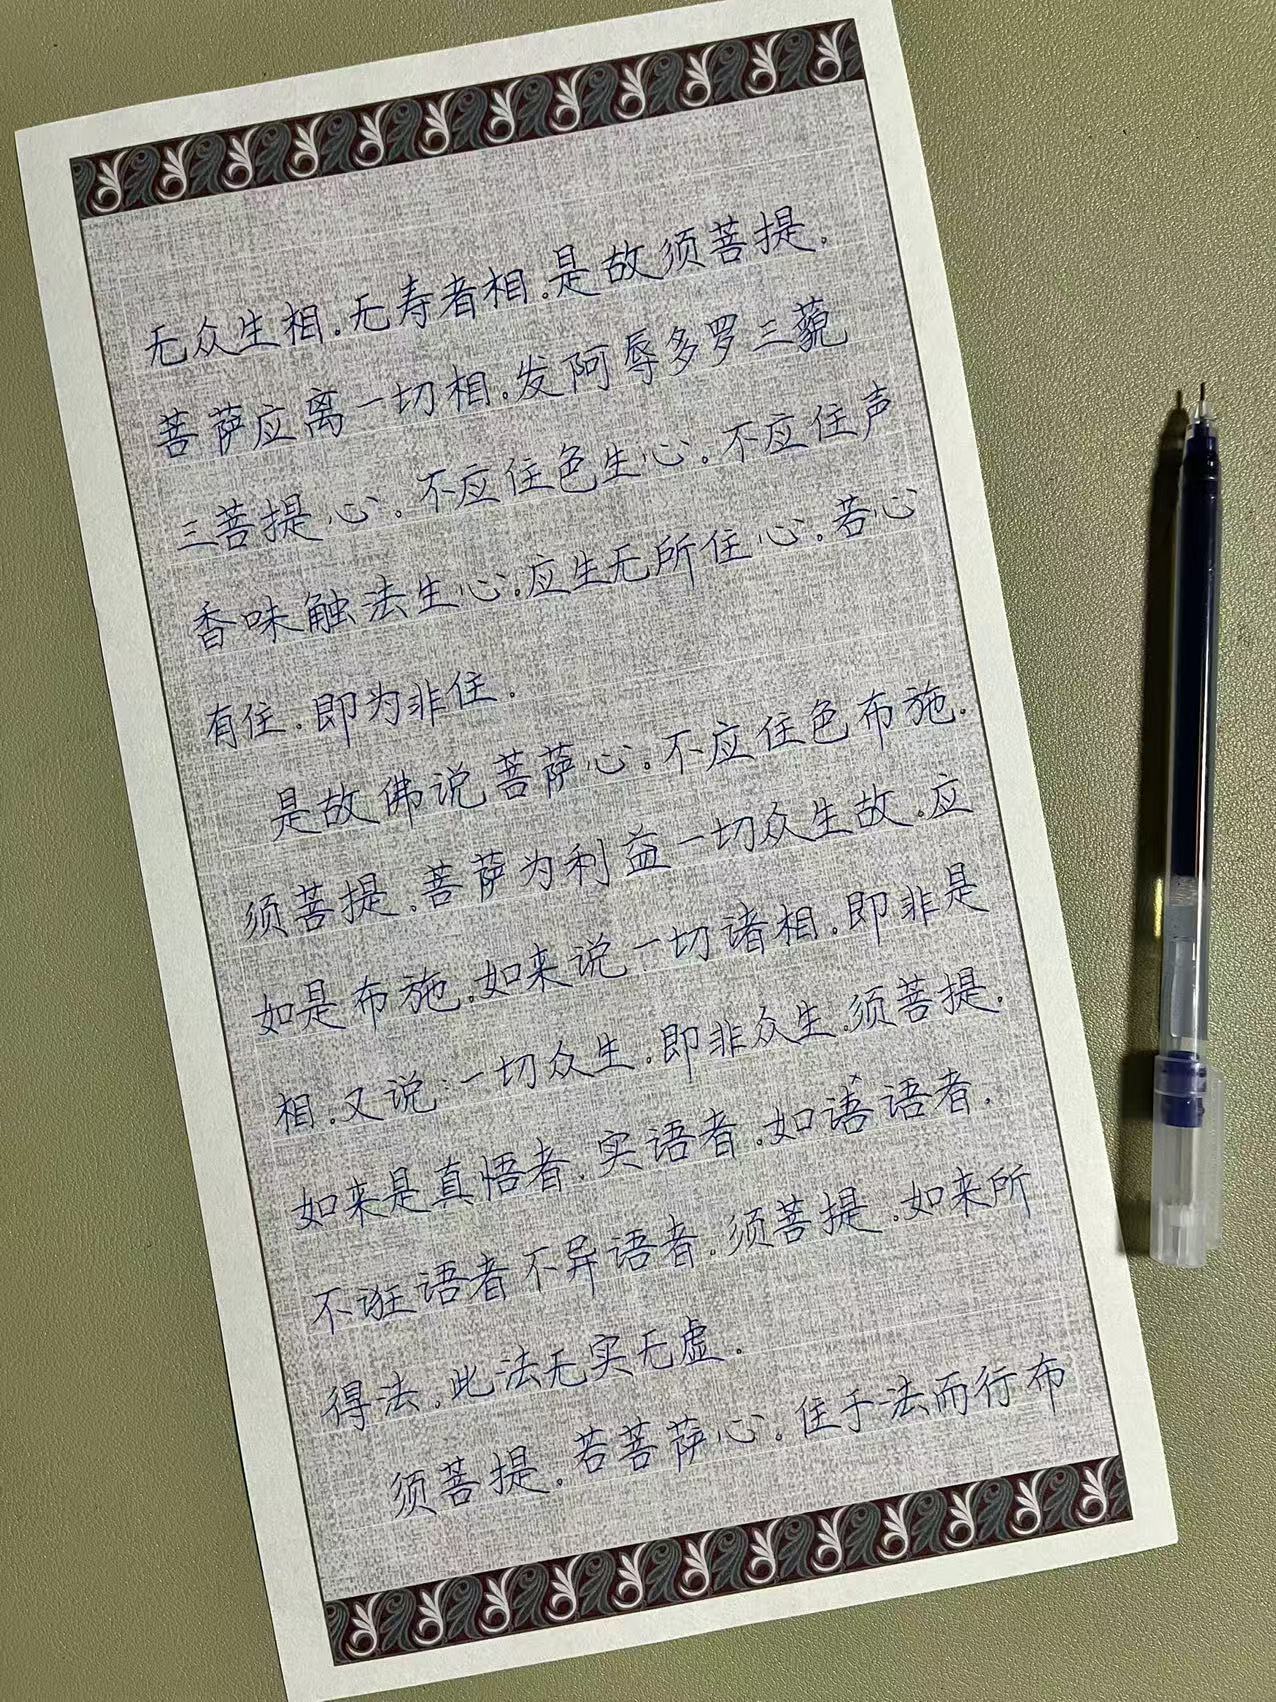 无众生相。无寿者相。是故须菩提。
菩萨应离一切相。发阿辱多罗三藐
三菩提心。不应住色生心。不应住声
香味触法生心。应生无所住心。若心
有住。即为非住。
是故佛说菩萨心。不应住色布施。
须菩提。菩萨为利益一切众生故。应
如是布施。如来说一切诸相。即非是
相。又说:一切众生。即非众生。须菩提。
如来是真悟者。实语者。如语者。
不诳语者不异语者。须菩提。如来所
得法。此法无实无虚。
须菩提。若菩萨心。住于法而行布